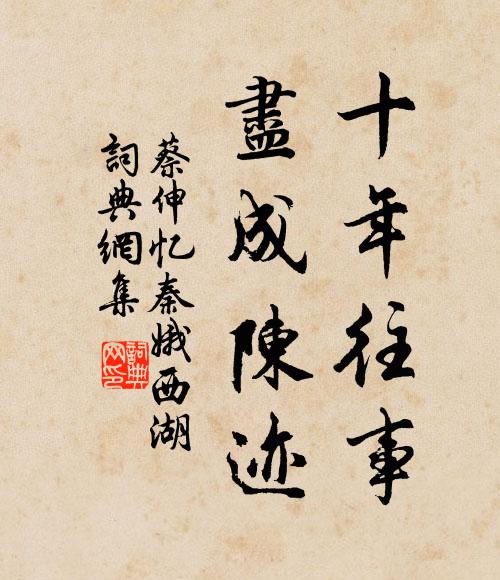 十年往事
盡成陳迹
蔡伸忆秦娥西湖
詞典網集
詞典
网印